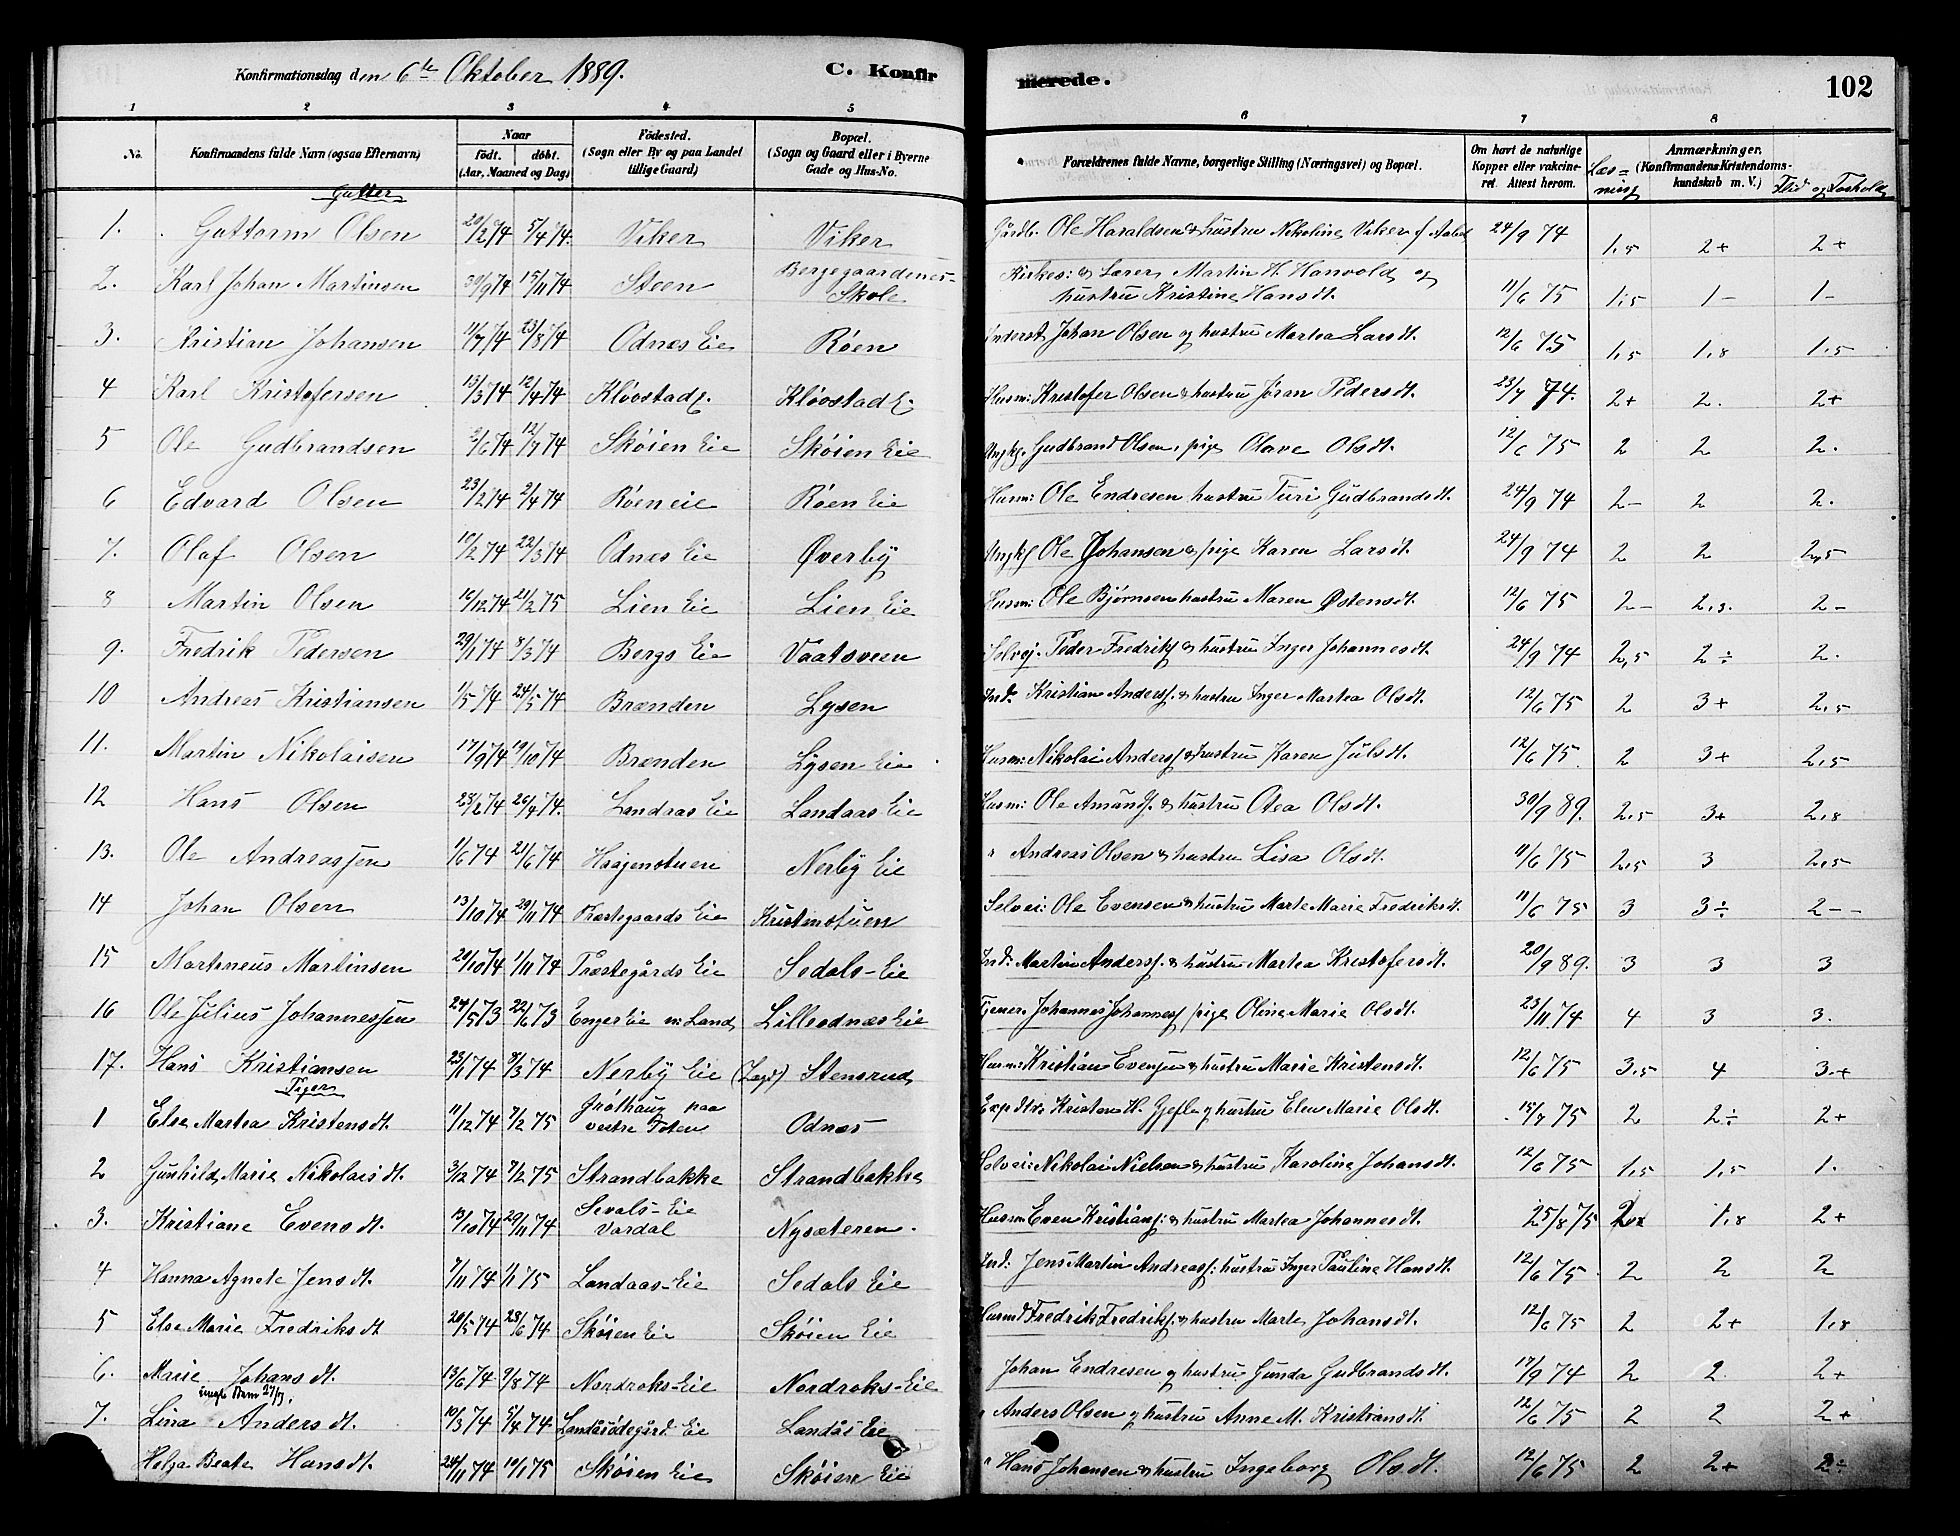 Konfirmationsdag den 6te Oktober 1889. C. Konfirmerede. 102
1 2 3 4 5 6 7 8
No. Konfirmandens fulde Navn (ogsaa Efternavn) Naar födt. döbt. (Aar, Maaned og Dag) Födested. (Sogn eller By og paa Landet tillige Gaard) Bopæl. (Sogn og Gaard eller i Byerne Gade og Hus-No. Forældrenes fulde Navne, borgerlige Stilling (Næringsvei) og Bopæl. Om havt de naturlige Kopper eller vakcineret. Attest herom. Læsning Anmærkninger. (Konfirmandens Kristendomskundskab m. V.) Flid og Forhold
Gutter
1. Guttorm Olsen 20/2 74 5/4 74. Viker Viker Gårdb. Ole Haraldsen & hustru Nikoline Viker 24/9 74 1,5 2+ 2+
2. Karl Johan Martinsen 30/9 74 15/11 74 Steen Bergegaardenes Skole Kirkes: & Lærer Martin H. Hanvold og hustru Kristine Hansdt. 11/6 75 1,5 1- 1-
3. Kristian Johansen 11/7 74 23/8 74 Odnæs Eie Røen Inderst Johan Olsen og hustru Martea Larsdt. 12/6 75 1,5 1,8 1,5
4 Karl Kristofersen 13/3 74 12/4 74 Kløvstad E. Kløvstad E. Husm: Kristofer Olsen & hustru Jøran Pedersdt. 23/7 74. 2+ 2. 2+
5 Ole Gudbrandsen 2/6 74 12/7 74 Skøien Eie Skøien Eie Ungk. Gudbrand Olsen, pige Olave Olsdt. 12/6 75 2 2 2.
6 Edvard Olsen 23/2 74 2/4 74 Røen eie Røen Eie Husm: Ole Endresen hustru Turi Gudbrandsdt. 24/9 74 2- 2 2.
7. Olaf Olsen 10/2 74 22/3 74 Odnæs Eie Øverby Ungk Ole Johansen & pige Karen Larsdt. 24/9 74 2 2 2,5
8 Martin Olsen 10/12 74 21/2 75 Lien Eie Lien Eie Husm: Ole Bjørnsen hustru Maren Østensdt. 12/6 75 2- 2,3. 2-
9. Fredrik Pedersen 29/1 74 8/3 74 Bergs Eie Vaatsveen Selvej. Peder Fredriks & hustru Inger Johannesdt. 24/9 74 2,5 2÷ 2.
10 Andreas Kristiansen 1/5 74 24/5 74 Brænden Lysen Ind. Kristian Anders. & hustru Inger Martea Olsdt. 12/6 75 2 3+ 2,5
11. Martin Nikolaisen 17/9 74 19/10 74 Brenden Lysen Eie Husm: Nikolai Anders & hustru Karen Julsdt. 12/6 75. 2 3+ 2,5
12 Hans Olsen 28/2 74 26/4 74. Landaas Eie Landaas Eie Husm: Ole Amund. & hustru Otea Olsdt. 30/9 89. 2,5 3+ 2,8
13. Ole Andreassen 1/6 74 21/6 74 Haajenstuen Nerby Eie " Andreas Olsen & hustru Lisa Olsdt. 11/6 75 2,5 3 2,5
14 Johan Olsen 13/10 74 29/11 74 Præstegaards Eie Kristmotuen Selvei: Ole Evensen & hustru Marte Marie Fredriksdt. 11/6 75 3 3÷ 2--
15 Martineus Martinsen 20/10 74 1/11 74 Præstegårds Eie Sedals-Eie Ind. Martin Anders. & hustru Martea Kristofersdt. 20/9 89. 3 3 3
16 Ole Julius Johannessen 24/5 73 22/6 73 Enger Eie n: Land Lilleodnæs Eie Tjener Johannes Johannes pige Oline Marie Olsdt. 23/11 74 4 3 3.
17. Hans Kristiansen 23/1 74 8/3 74 Nerby Eie Stensrud Husm: Kristian Evensen & hustru Marie Kristensdt. 12/6 75 3,5 4 3.+
Piger
1 Else Martea Kristensdt 11/12 74 7/2 75 paa vestre Toten Odnæs Kristen H. Gjefle & hustru Elen Marie Olsdt. 15/7 75 2 2÷ 2+
2 Gunhild Marie Nikolaisdt. 3/12 74 7/2 75 Strandbakke Strandbakke Selvei: Nikolai Nielsen & hustru Karoline Johansdt. 12/6 75 1,5 1,5 1.
3. Kristiane Evensdt. 13/10 74 29/11 74 Sevals-Eie Vardal Nysæteren. Husm Even Kristians: & hustru Martea Johannesdt. 25/8 75 2 1,8 2+
4 Hanna Agnete Jensdt. 7/11 74 1/1 75 Landaas-Eie Sedals Eie Ind. Jens Martin Andreas: hustru Inger Pauline Hansdt. 12/6 75. 2 2 2
5 Else Marie Fredriksdt 20/5 74 28/6 74 Skøien Eie Skøien Eie Husmd Fredrik Fredriks. & hustru Marte Johansdt. 12/6 75 2 2+ 1,8
6. Marie Johansdt. 13/6 74 9/8 74 Nordroks-Eie Nordroks-Eie Johan Endresen & hustru Gunda Gudbrandsdt. 17/9 74 2 2. 2+
7. Lina Andersdt. 10/3 74 5/4 74 Landåsødegård Eie Landås Eie " Anders Olsen & hustru Anne M. Kristiansdt. 12/6 75 2 2 2+
Helga Beate Hansdt. 24/11 74 10/1 75 Skøien Eie Skøien Eie " Hans Johansen & hustru Ingeborg Olsdt. 12/6 75 2 2+ 2÷